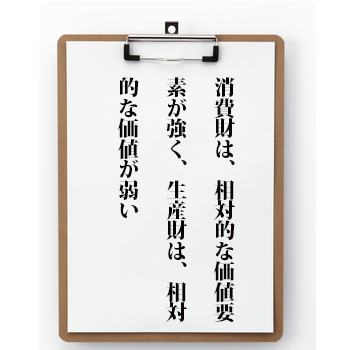 消費財は、相対的な価値要
素が強く、生産財は、相対
的な価値が弱い